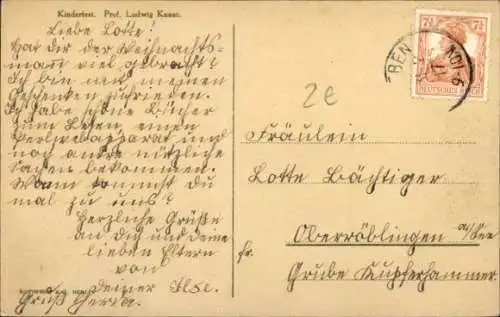 Kinderfest. Prof. Ludwig Knaus.
Liebe Lotte!
Hat dir der Weihnachts-
mann viel gebracht?
Ich bin mit meinen
Geschenken zufrieden.
Ich habe schöne Bücher
zum Lesen, einen
und
noch andre nützliche
Sachen bekommen.
Wann kommst du
mal zu uns?
Herzliche Grüße
an dich und deine
lieben Eltern
von
deiner Ilse.
Gruß Herta.
7½ 7½
DEUTSCHES REICH
BEN
2 e
Fräulein
Lotte Bächtiger
Oberröblingen a/See
fr.
Grube Kupferhammer.